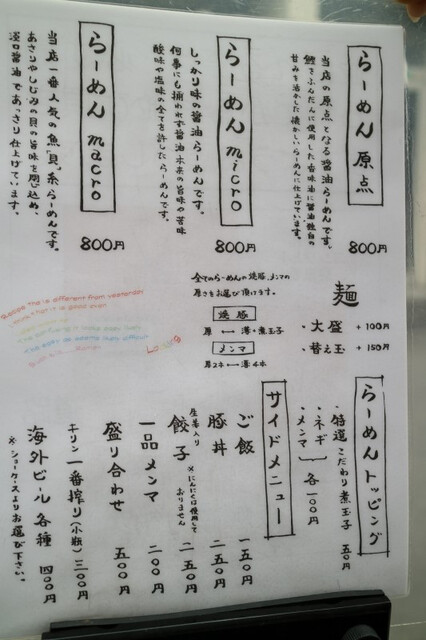 らーめん 原点
当店の原点となる醤油らーめんです。
鰹をふんだんに使用した香味油に醤油独自の
甘みを活かした懐かしいらーめんに仕上げています。
800円
らーめん micro
しっかり味の醤油らーめんです。
何事にも捕われず醤油本来の旨味や苦味
酸味や塩味の全てを許したらーめんです。
800円
らーめん macro
当店一番人気の魚"貝"系らーめんです。
あさりやしじみの貝の旨味を閉じ込め、
淡口醤油であっさり仕上げています。
800円
麺
・大盛 +100円
・替え玉 +150円
全てのらーめんの焼豚、メンマの
厚さをお選び頂けます。
焼豚
厚 ⟷ 薄+煮玉子
メンマ
厚2本 ⟷ 薄4本
らーめんトッピング
・特選こだわり煮玉子 五〇円
・ネギ
・メンマ 各一〇〇円
サイドメニュー
ご飯 一五〇円
豚丼 二五〇円
生姜入り
餃子 ※にんにくは使用して
おりません 二五〇円
一品メンマ 二〇〇円
盛り合わせ 五〇〇円
キリン一番搾り(小瓶) 三〇〇円
海外ビール各種 四〇〇円
※ショーケースよりお選び下さい。